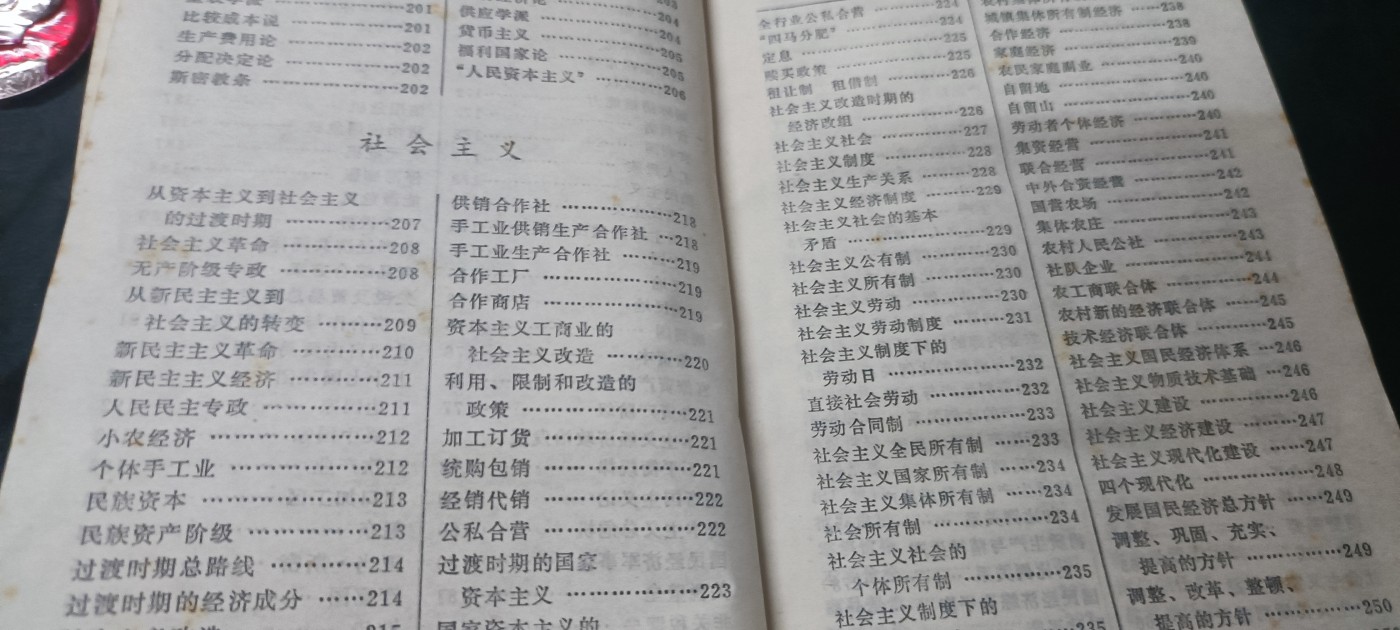 比较成本说 ………………201
生产费用论 ………………202
分配决定论 ………………202
斯密教条 …………………202
供应学派 …………………204
货币主义 …………………204
福利国家论 ………………205
“人民资本主义” …………206
社会主义
从资本主义到社会主义
的过渡时期 ……………207
社会主义革命 ……………208
无产阶级专政 ……………208
从新民主主义到
社会主义的转变 ………209
新民主主义革命 …………210
新民主主义经济 …………211
人民民主专政 ……………211
小农经济 …………………212
个体手工业 ………………212
民族资本 …………………213
民族资产阶级 ……………213
过渡时期总路线 …………214
过渡时期的经济成分 ……214
供销合作社 ………………218
手工业供销生产合作社 …218
手工业生产合作社 ………219
合作工厂 …………………219
合作商店 …………………219
资本主义工商业的
社会主义改造 …………220
利用、限制和改造的
政策 ……………………221
加工订货 …………………221
统购包销 …………………221
经销代销 …………………222
公私合营 …………………222
过渡时期的国家
资本主义 ………………223
国家资本主义的
全行业公私合营 …………224
“四马分肥” ………………224
定息 ………………………225
赎买政策 …………………225
租让制 租借制 …………226
社会主义改造时期的
经济改组 ………………226
社会主义社会 ……………227
社会主义制度 ……………228
社会主义生产关系 ………228
社会主义经济制度 ………229
社会主义社会的基本
矛盾 ……………………229
社会主义公有制 …………230
社会主义所有制 …………230
社会主义劳动 ……………230
社会主义劳动制度 ………231
社会主义制度下的
劳动日 …………………232
直接社会劳动 ……………232
劳动合同制 ………………233
社会主义全民所有制 ……233
社会主义国家所有制 ……234
社会主义集体所有制 ……234
社会所有制 ………………234
社会主义社会的
个体所有制 ……………235
社会主义制度下的
235
城镇集体所有制经济 ……238
合作经济 …………………238
家庭经济 …………………239
农民家庭副业 ……………240
自留地 ……………………240
自留山 ……………………240
劳动者个体经济 …………240
集资经营 …………………241
联合经营 …………………241
中外合资经营 ……………242
国营农场 …………………242
集体农庄 …………………243
农村人民公社 ……………243
社队企业 …………………244
农工商联合体 ……………244
农村新的经济联合体 ……245
技术经济联合体 …………245
社会主义国民经济体系 …246
社会主义物质技术基础 …246
社会主义建设 ……………246
社会主义经济建设 ………247
社会主义现代化建设 ……247
四个现代化 ………………248
发展国民经济总方针 ……249
调整、巩固、充实、
提高的方针 ……………249
调整、改革、整顿、
提高的方针 ……………250